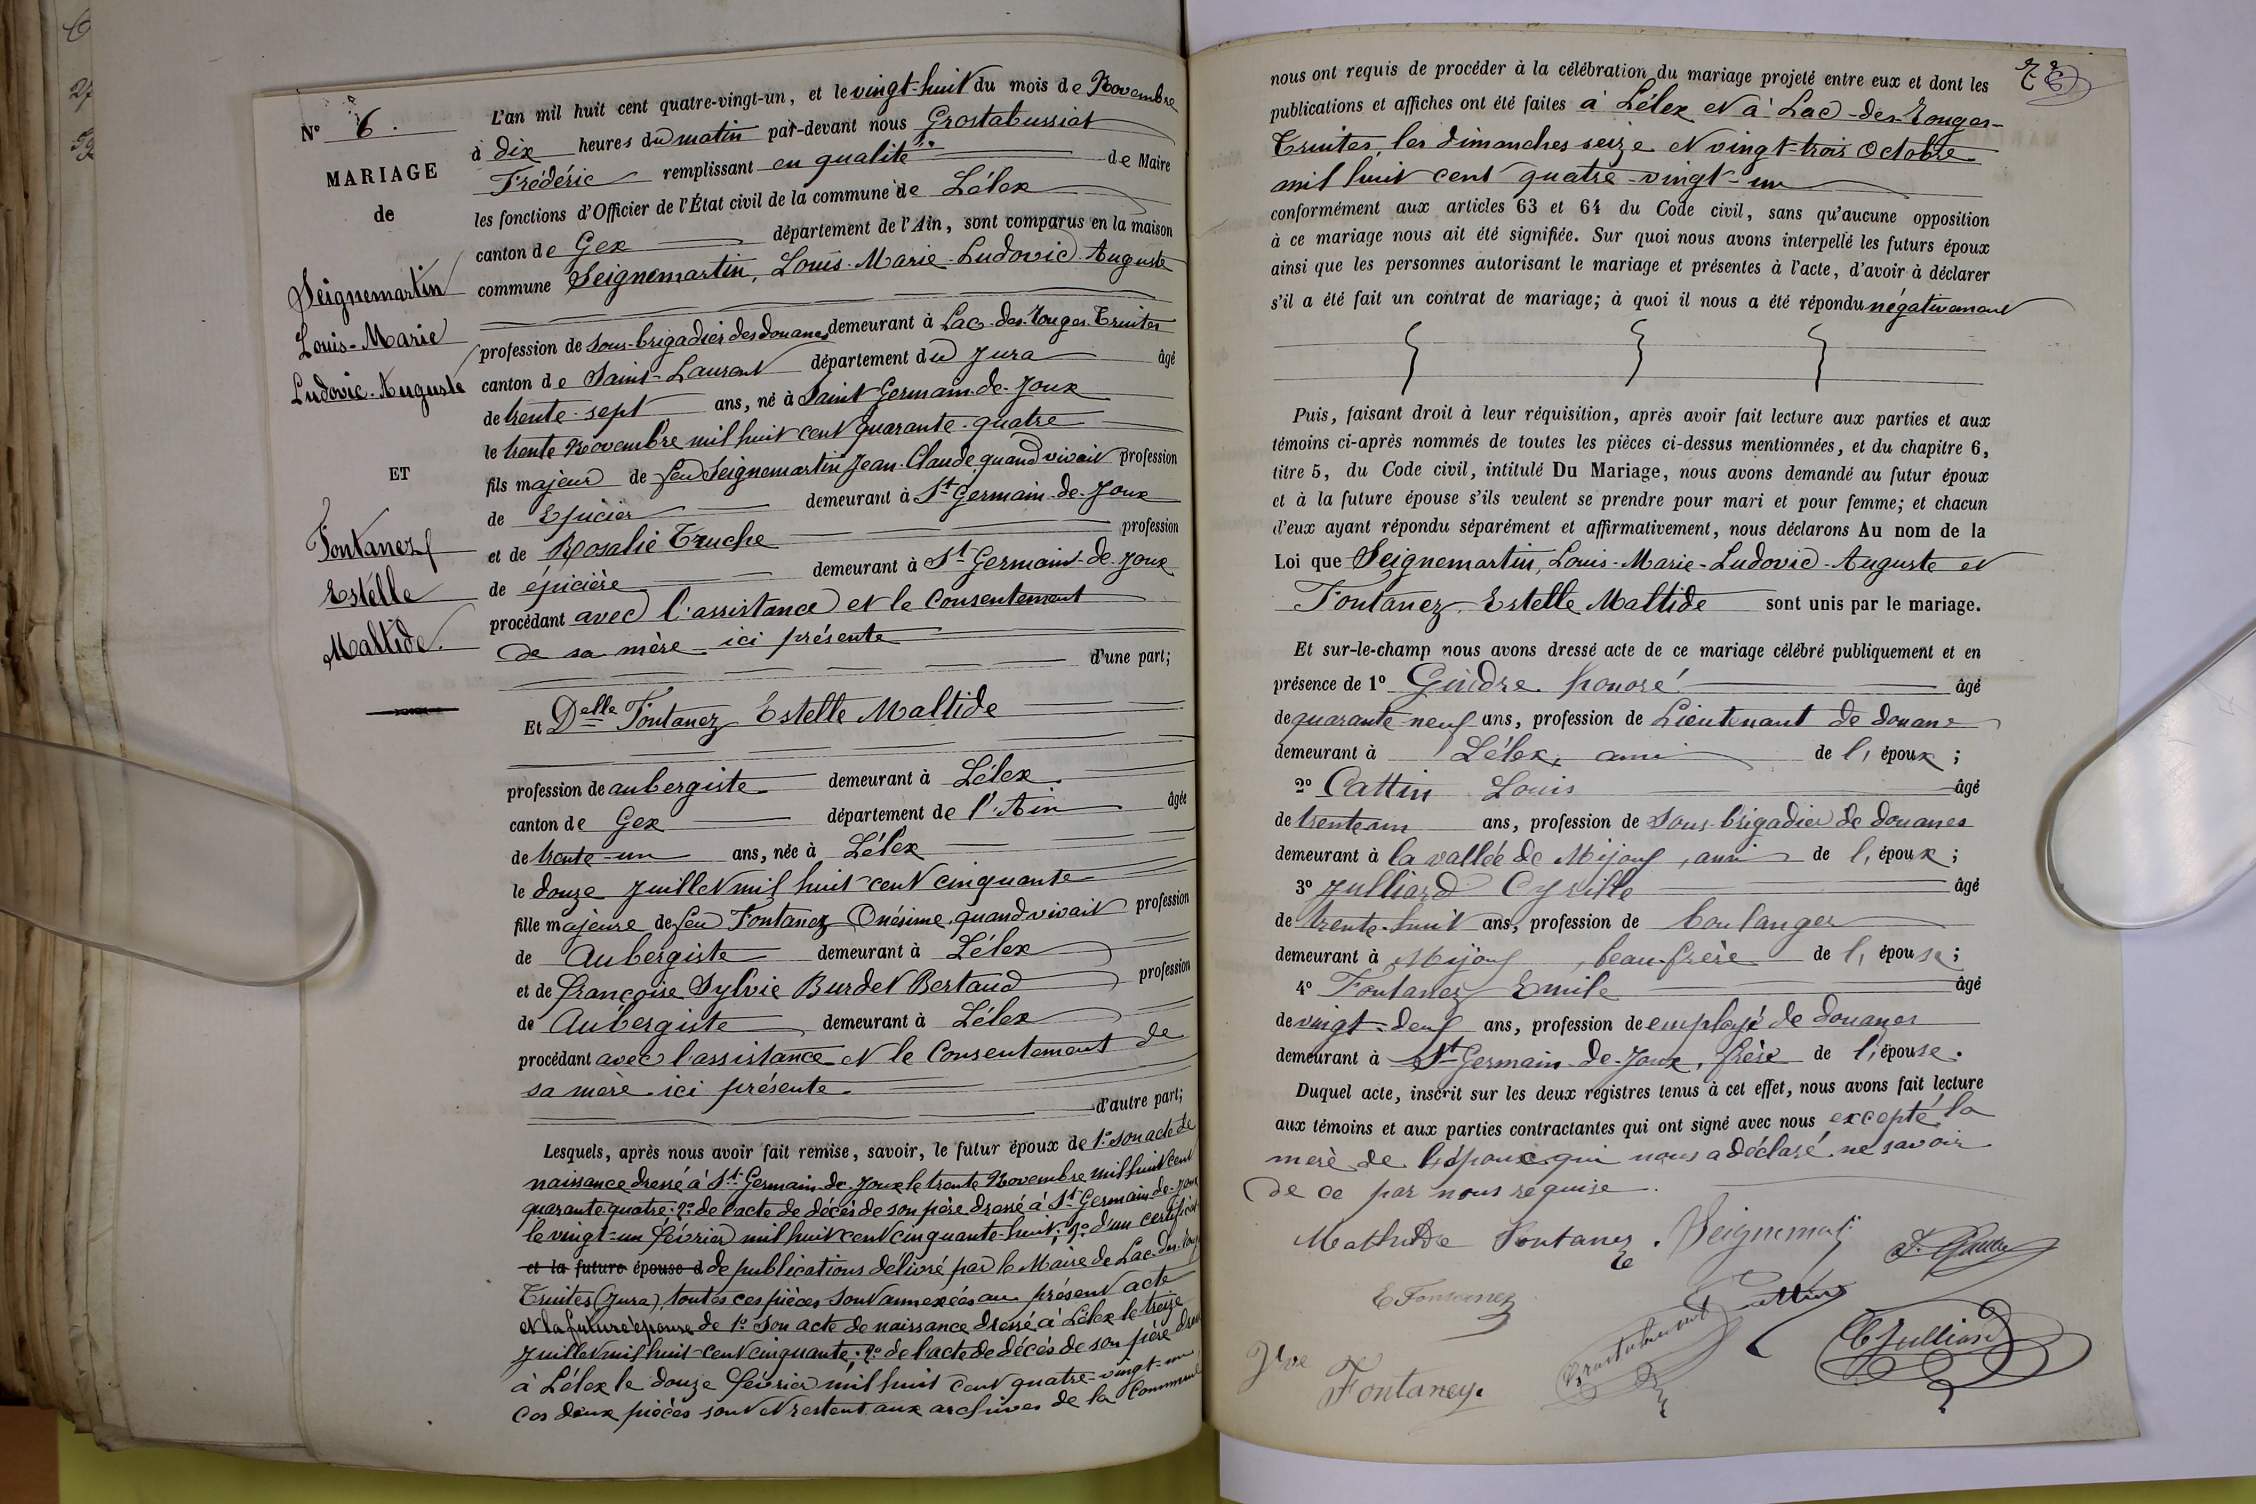 N° 6.
MARIAGE
de
Seignemartin
Louis-Marie
Ludovic-Auguste
ET
Fontanez
Estelle
Maltide.
L'an mil huit cent quatre-vingt-un, et le vingt-huit du mois de Novembre
à dix heures du matin par-devant nous Grostabussiat
Frédéric remplissant en qualité de Maire
les fonctions d'Officier de l'État civil de la commune de Lélex
canton de Gex département de l'Ain, sont comparus en la maison
commune Seignemartin, Louis-Marie-Ludovic-Auguste
profession de sous-brigadier des douanes demeurant à Lac-des-Rouges-Truites
canton de Saint-Laurent département du Jura âgé
de trente-sept ans, né à Saint Germain-de-Joux
le trente Novembre mil huit cent quarante-quatre
fils majeur de feu Seignemartin Jean-Claude quand vivait profession
de Epicier demeurant à St Germain-de-Joux
et de Rosalie Truche profession
de épicière demeurant à St Germain-de-Joux
procédant avec l'assistance et le Consentement
de sa mère ici présente
d'une part;
Et Delle Fontanez Estelle Maltide
profession de aubergiste demeurant à Lélex.
canton de Gex département de l'Ain âgée
de trente-un ans, née à Lélex
le douze Juillet mil huit cent cinquante
fille majeure de feu Fontanez Onésime quand vivait profession
de Aubergiste demeurant à Lélex
et de françoise Sylvie Burdet Bertaud profession
de Aubergiste demeurant à Lélex
procédant avec l'assistance et le Consentement de
sa mère ici présente.
d'autre part;
Lesquels, après nous avoir fait remise, savoir, le futur époux de 1° son acte de
naissance dressé à St Germain-de-Joux le trente Novembre mil huit cent
quarante-quatre; 2° de l'acte de décès de son père dressé à St Germain-de-Joux
le vingt-un février mil huit cent cinquante-huit; 3° d'un certificat
et la future épouse d de publications délivré par le Maire de Lac-des-Rouges
Truites (Jura), toutes ces pièces sont annexées au présent acte
et la future épouse de 1° son acte de naissance dressé à Lélex le treize
Juillet mil huit cent cinquante; 2° de l'acte de décès de son père dressé
à Lélex le douze février mil huit cent quatre-vingt-un
Ces deux pièces sont et restent aux archives de la Commune
nous ont requis de procéder à la célébration du mariage projeté entre eux et dont les
publications et affiches ont été faites à Lélex et à Lac-des-Rouges-
Truites, les dimanches seize et vingt-trois Octobre
mil huit cent quatre-vingt-un
conformément aux articles 63 et 64 du Code civil, sans qu'aucune opposition
à ce mariage nous ait été signifiée. Sur quoi nous avons interpellé les futurs époux
ainsi que les personnes autorisant le mariage et présentes à l'acte, d'avoir à déclarer
s'il a été fait un contrat de mariage; à quoi il nous a été répondu négativement
Puis, faisant droit à leur réquisition, après avoir fait lecture aux parties et aux
témoins ci-après nommés de toutes les pièces ci-dessus mentionnées, et du chapitre 6,
titre 5, du Code civil, intitulé Du Mariage, nous avons demandé au futur époux
et à la future épouse s'ils veulent se prendre pour mari et pour femme; et chacun
d'eux ayant répondu séparément et affirmativement, nous déclarons Au nom de la
Loi que Seignemartin, Louis-Marie-Ludovic-Auguste et
Fontanez Estelle Maltide sont unis par le mariage.
Et sur-le-champ nous avons dressé acte de ce mariage célébré publiquement et en
présence de 1° Gindre honoré âgé
de quarante-neuf ans, profession de Lieutenant de douane
demeurant à Lélex, ami de l'époux;
2° Cattin Louis âgé
de trente un ans, profession de Sous-brigadier de douanes
demeurant à la vallée de Mijoux, ami de l'époux;
3° Julliard Cyrille âgé
de trente-huit ans, profession de boulanger
demeurant à Mijoux, beau-frère de l'épouse;
4° Fontanez Emile âgé
de vingt-deux ans, profession de employé de douanes
demeurant à St Germain-de-Joux, frère de l'épouse.
Duquel acte, inscrit sur les deux registres tenus à cet effet, nous avons fait lecture
aux témoins et aux parties contractantes qui ont signé avec nous excepté la
mère de l'époux qui nous a déclaré ne savoir
de ce par nous requise.
Mathilde Fontanez. Seignemartin
E Fontanez Cattin
Grostabussiat C Julliard
Vve Fontanez.